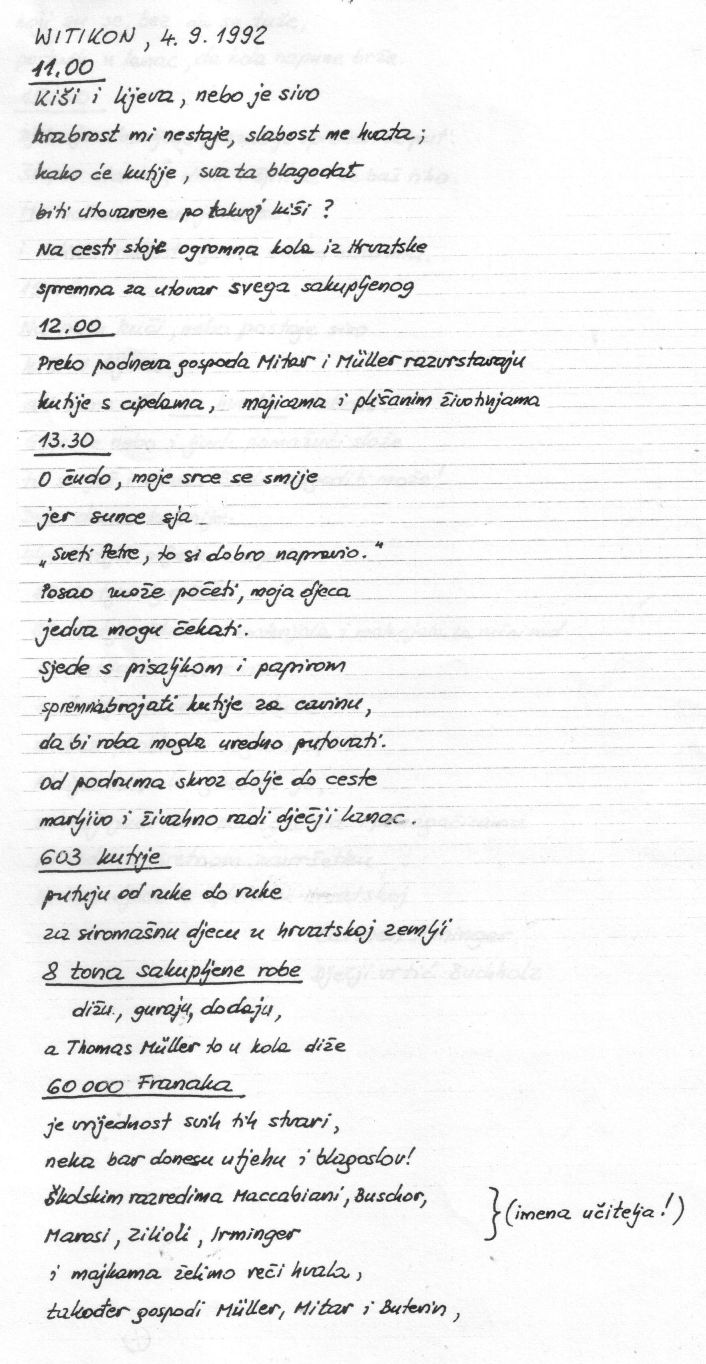 WITIKON, 4. 9. 1992
11.00
Kiši i lijeva, nebo je sivo
hrabrost mi nestaje, slabost me hvata;
kako će kutije, sva ta blagodat
biti utovarene po takvoj kiši?
Na cesti stoje ogromna kola iz Hrvatske
spremna za utovar svega sakupljenog
12.00
Preko podneva gospoda Mitar i Müller razvrstavaju
kutije s cipelama, i majicama i plišanim životinjama
13.30
O čudo, moje srce se smije
jer sunce sja
„Sveti Petre, to si dobro napravio."
Posao može početi, moja djeca
jedva mogu čekati.
Sjede s pisaljkom i papirom
spremna brojati kutije za carinu,
da bi roba mogla uredno putovati.
Od podruma skroz dolje do ceste
marljivo i živahno radi dječji lanac.
603 kutije
putuju od ruke do ruke
za siromašnu djecu u hrvatskoj zemlji
8 tona sakupljene robe
dižu, guraju, dodaju,
a Thomas Müller to u kola diže
60 000 Franaka
je vrijednost svih tih stvari,
neka bar donesu utjehu i blagoslov!
Školskim razredima Maccabiani, Buschor,
Marosi, Zilioli, Irminger } (imena učitelja!)
i majkama želimo reči hvala,
također gospodi Müller, Mitar i Buterin,